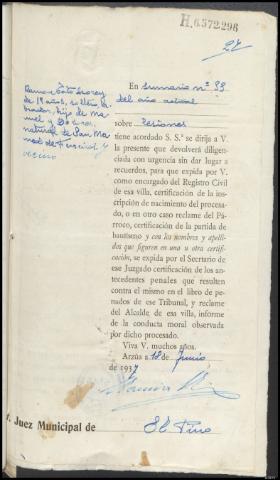 H.6572296
27
Ramon Coto
de 19 años, soltero, la-
brador, hijo de Ma-
nuel y
natural de San Ma-
med de Ferreiros y
vecino
En sumario nº 33
del año actual
sobre Lesiones
tiene acordado S. Sª se dirija a V.
la presente que devolverá diligencia-
da con urgencia sin dar lugar a
recuerdos, para que expida por V.
como encargado del Registro Civil
de esa villa, certificación de la ins-
cripción de nacimiento del procesa-
do, o en otro caso reclame del Pá-
rroco, certificación de la partida de
bautismo y con los nombres y apelli-
dos que figuren en una u otra certifi-
cación, se expida por el Secrtario de
ese Juzgado certificación de los an-
tecedentes penales que resulten
contra el mismo en el libro de pe-
nados de ese Tribunal, y reclame
del Alcalde de esa villa, informe
de la conducta moral observada
por dicho procesado.
Viva V. muchos años.
Arzúa a 18 de Junio
de 1937
r. Juez Municipal de El Pino